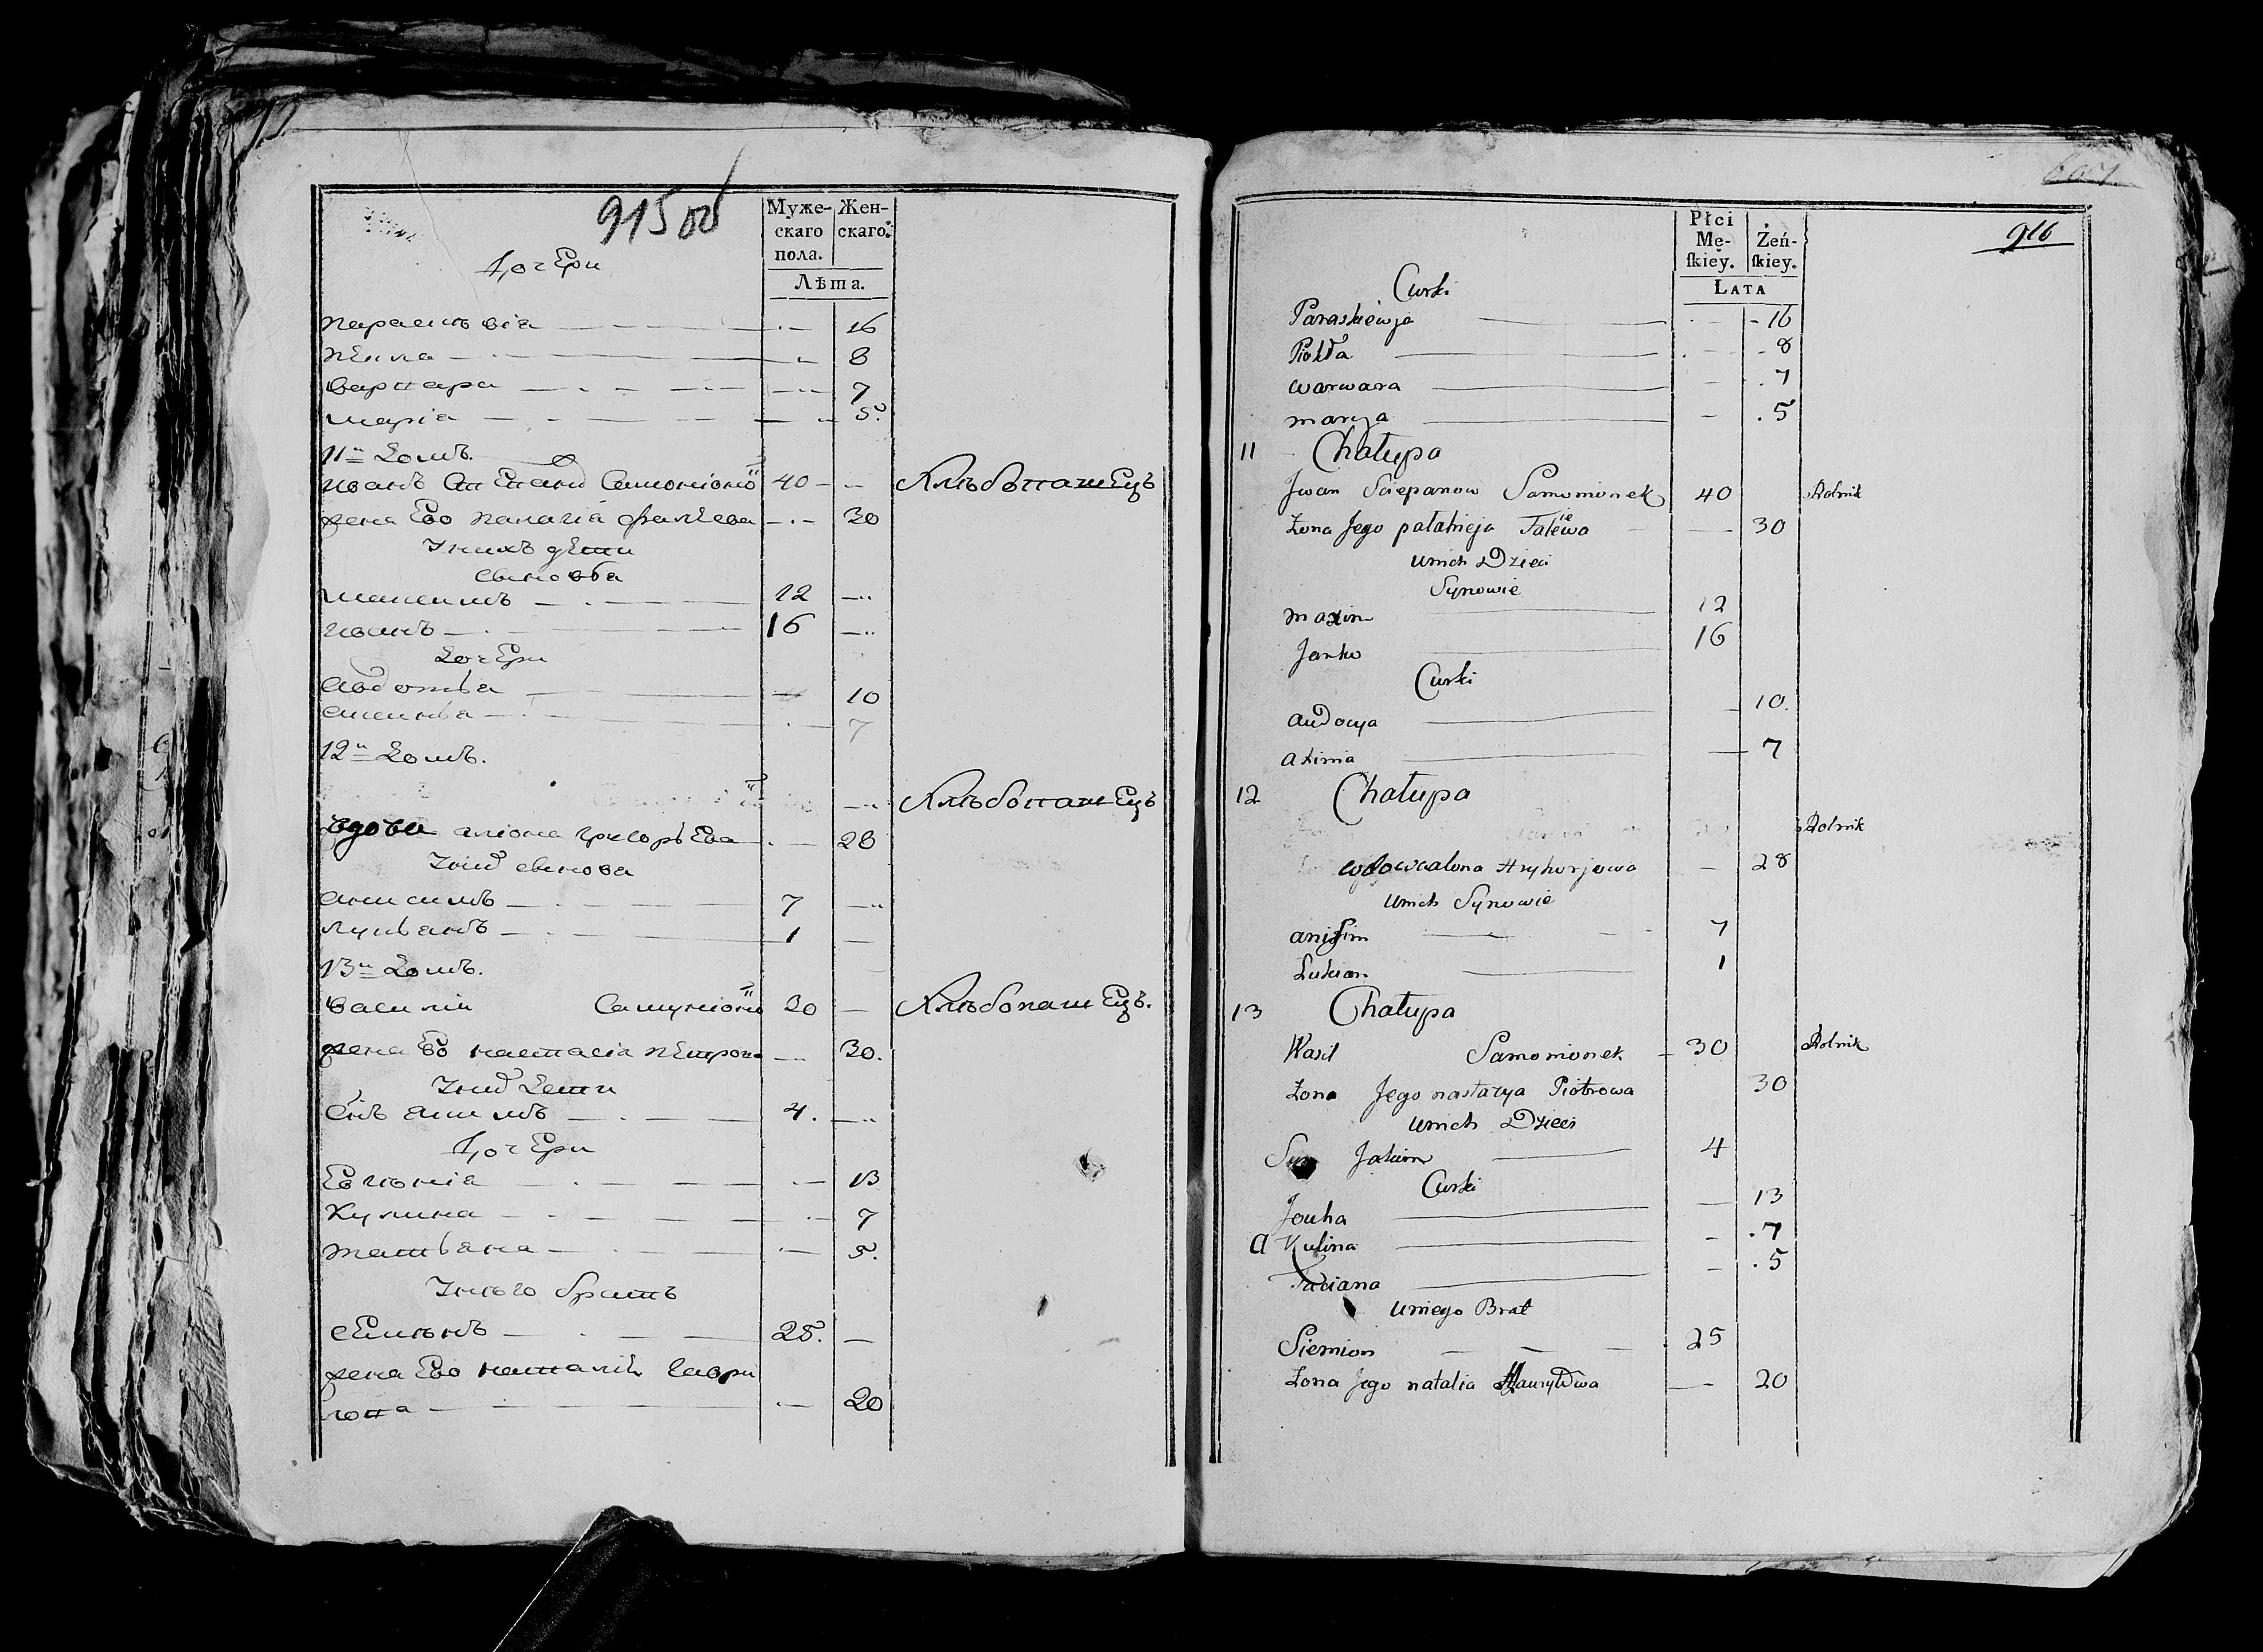 915 об
Муже-
скаго
пола.
Жен-
скаго.
Лѣта.
Дочери
параскѣвіа — 16
текла — 8
варвара — 7
маріа — 5.
11й Домъ.
иванъ Степановъ Самоніонокъ 40 — хлѣбопашецъ
жена Его палагіа фалѣева — 30
У нихъ дѣти
сыновьа
максимъ — 12
иванъ — 16
Дочери
авдотьа — 10
аксинья — 7
12й Домъ.
— хлѣбопашецъ
вдова алiона григорьева — 28
У ней сынова
анисимъ — 7
лукьанъ — 1
13й Домъ.
василій Самуніонокъ 30 — хлѣбопашецъ.
жена Его настасіа петрова — 30.
У ней Дети
Сынъ акимъ — 4.
Дочери
— 13
Кулина — 7
татьана — 5.
У него братъ
семіонъ — 25.
жена Его наталіа Гаври
лова — 20
916
Płci
Mę-
ſkiey.
Żeń-
ſkiey.
LATA
Curki
Paraskiewja — 16
— 8
warwara — 7
marya — 5
11 Chałupa
Jwan Sciepanow Samonionek 40 Rolnik
Żona Jego pałahieja Falewa — 30
unich Dzieci
Synowie
maxim — 12
Janko — 16
Curki
audocya — 10.
axinia — 7
12 Chałupa
Rolnik
wdowa alona Hryhorjowa — 28
unich Synowie
anisim — 7
Łukian — 1
13 Chałupa
Wasil Samonionek — 30 Rolnik
Żona Jego nastazya Piotrowa 30
unich Dzieci
Syn Jakim — 4
Curki
Jouha — 13
a Kulina — 7
Taciana — 5
uniego Brat
Siemion — 25
Żona Jego natalia Hauryłowa — 20